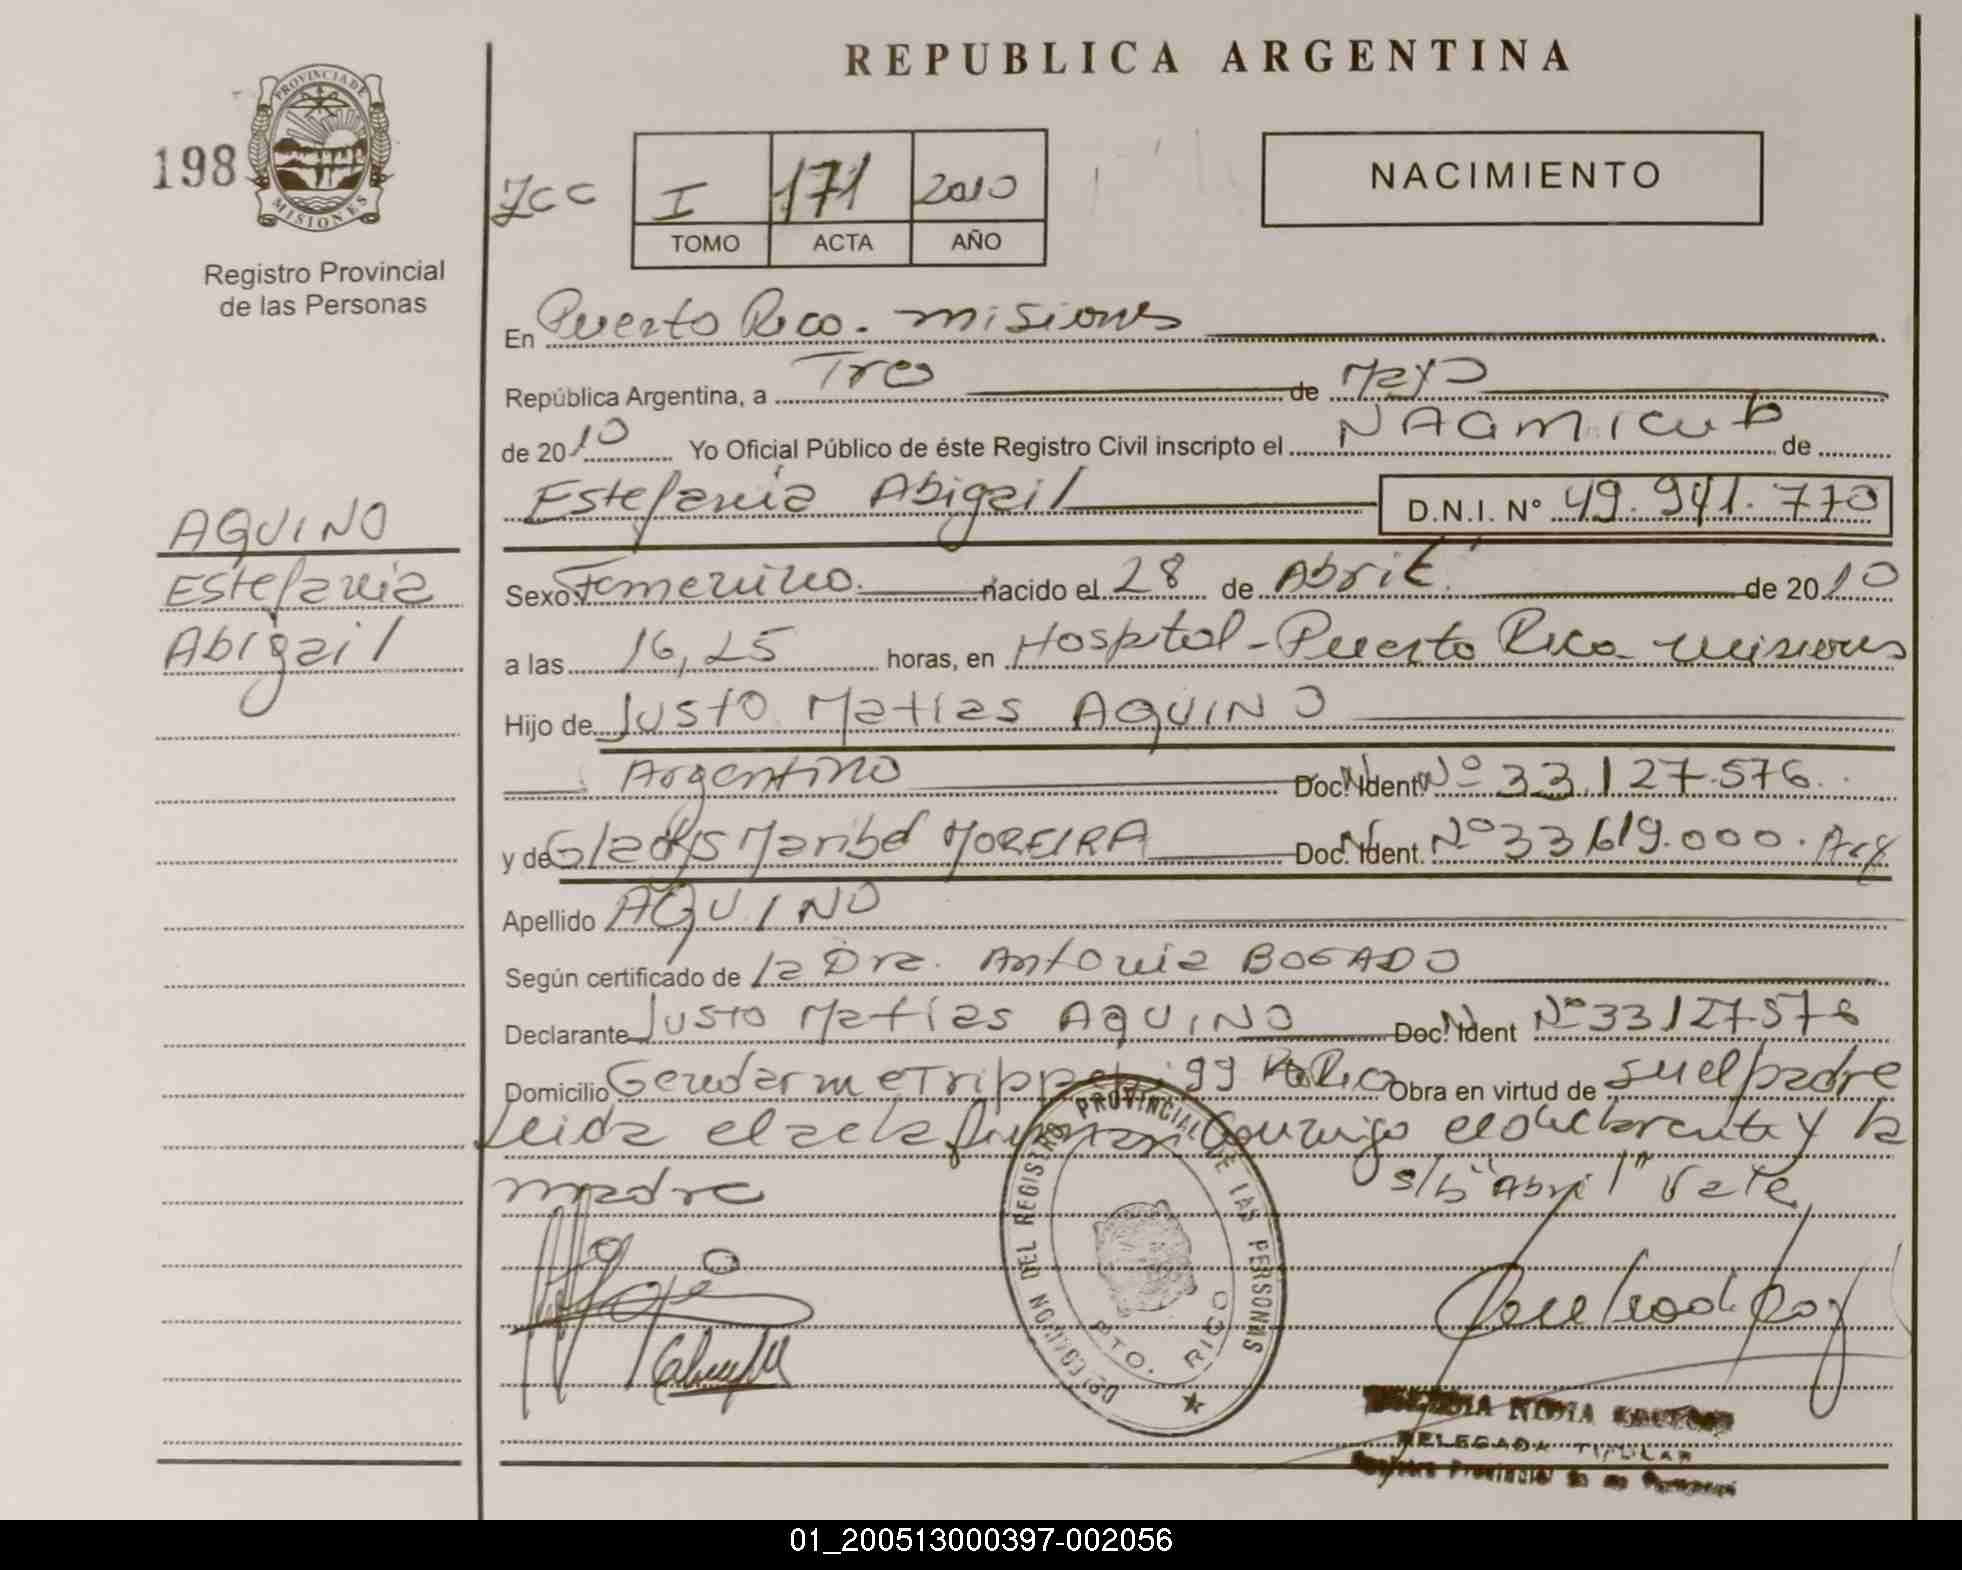 REPUBLICA ARGENTINA
PROVINCIA DE
MISIONES
198
Registro Provincial
de las Personas
I 171 2010
TOMO ACTA AÑO
NACIMIENTO
En Puerto Rico. misiones
República Argentina, a Tres de Mayo
de 2010 Yo Oficial Público de éste Registro Civil inscripto el de
Estefania Abigail D.N.I. Nº 49.941.770
AQUINO
Estefania
Abigail
Sexo Femenino. nacido el 28 de Abril. de 2010
a las 16,25 horas, en Hospital - Puerto Rico misiones
Hijo de Justo Matias AQUINO
Argentino Doc. Ident. Nº 33.127.576.
y de Gladys Maribel MOREIRA Doc. Ident. Nº 33.619.000. Arg
Apellido AQUINO
Según certificado de la Dra. Antonia BOGADO
Declarante Justo Matías AQUINO Doc. Ident Nº 33127576
Domicilio Gendarme 99 Obra en virtud de su el padre
Leida el acta Conmigo el declarante y la
madre s/b "Abril" Vale
DIRECCION DEL REGISTRO PROVINCIAL DE LAS PERSONAS
PTO. RICO
NIDIA
DELEGADA TITULAR
Registro Provincial de las Personas
01_200513000397-002056